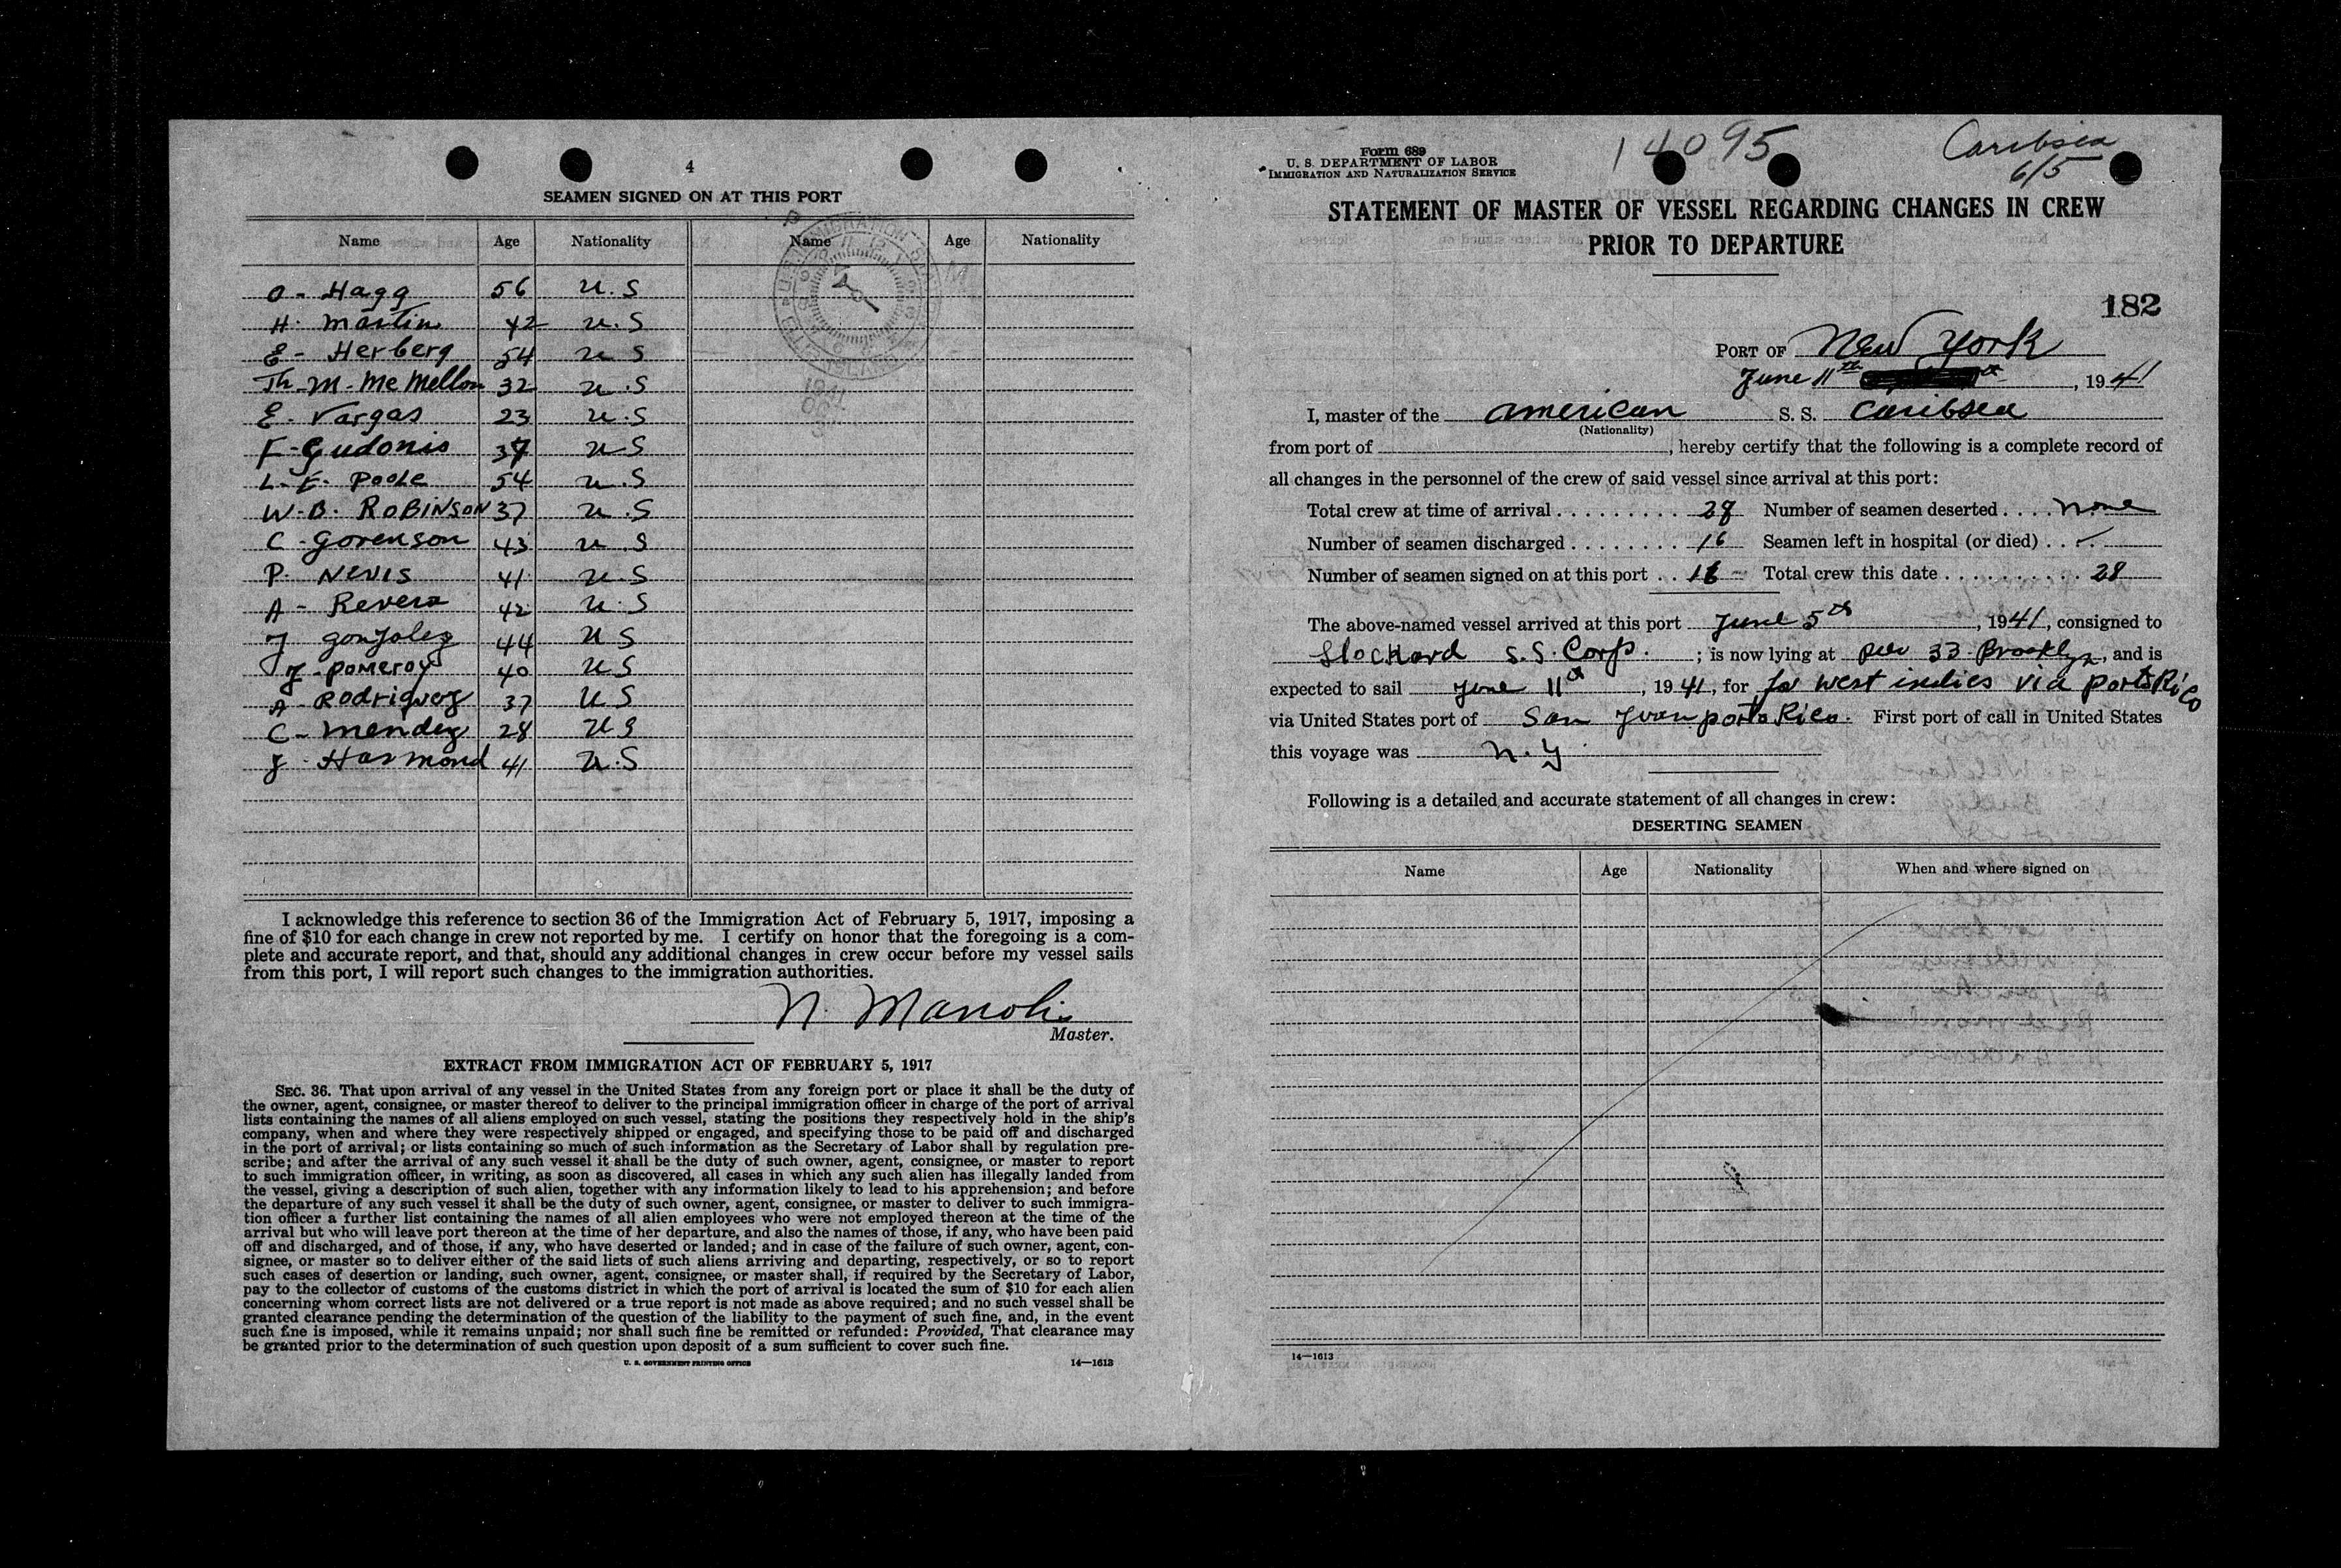 4
SEAMEN SIGNED ON AT THIS PORT
Name Age Nationality Name Age Nationality
O- Hagg 56 U.S
H. Martin 42 U.S
E- Herberg 54 U S
Th-M-McMellon 32 U.S
E. Vargas 23 U.S
F-Gudonis 37 U S
L-F- Poole 54 U.S
W-B. ROBINSON 37 U.S
C-Gorenson 43 U.S
P. NEVIS 41 U.S
A- Revera 42 U.S
J Gonzalez 44 U S
J-Pomeroy 40 U S
A-Rodriguez 37 U S
C-Mendez 28 U S
J-Harmond 41 U.S
I acknowledge this reference to section 36 of the Immigration Act of February 5, 1917, imposing a
fine of $10 for each change in crew not reported by me. I certify on honor that the foregoing is a com-
plete and accurate report, and that, should any additional changes in crew occur before my vessel sails
from this port, I will report such changes to the immigration authorities.
N. Manolis
Master.
EXTRACT FROM IMMIGRATION ACT OF FEBRUARY 5, 1917
SEC. 36. That upon arrival of any vessel in the United States from any foreign port or place it shall be the duty of
the owner, agent, consignee, or master thereof to deliver to the principal immigration officer in charge of the port of arrival
lists containing the names of all aliens employed on such vessel, stating the positions they respectively hold in the ship's
company, when and where they were respectively shipped or engaged, and specifying those to be paid off and discharged
in the port of arrival; or lists containing so much of such information as the Secretary of Labor shall by regulation pre-
scribe; and after the arrival of any such vessel it shall be the duty of such owner, agent, consignee, or master to report
to such immigration officer, in writing, as soon as discovered, all cases in which any such alien has illegally landed from
the vessel, giving a description of such alien, together with any information likely to lead to his apprehension; and before
the departure of any such vessel it shall be the duty of such owner, agent, consignee, or master to deliver to such immigra-
tion officer a further list containing the names of all alien employees who were not employed thereon at the time of the
arrival but who will leave port thereon at the time of her departure, and also the names of those, if any, who have been paid
off and discharged, and of those, if any, who have deserted or landed; and in case of the failure of such owner, agent, con-
signee, or master so to deliver either of the said lists of such aliens arriving and departing, respectively, or so to report
such cases of desertion or landing, such owner, agent, consignee, or master shall, if required by the Secretary of Labor,
pay to the collector of customs of the customs district in which the port of arrival is located the sum of $10 for each alien
concerning whom correct lists are not delivered or a true report is not made as above required; and no such vessel shall be
granted clearance pending the determination of the question of the liability to the payment of such fine, and, in the event
such fine is imposed, while it remains unpaid; nor shall such fine be remitted or refunded: Provided, That clearance may
be granted prior to the determination of such question upon deposit of a sum sufficient to cover such fine.
U. S. GOVERNMENT PRINTING OFFICE 14—1613
Form 689
U. S. DEPARTMENT OF LABOR
IMMIGRATION AND NATURALIZATION SERVICE
14095
Caribsea
6/5
STATEMENT OF MASTER OF VESSEL REGARDING CHANGES IN CREW
PRIOR TO DEPARTURE
182
PORT OF New York
June 11th, 1941
I, master of the American S. S. Caribsea
(Nationality)
from port of , hereby certify that the following is a complete record of
all changes in the personnel of the crew of said vessel since arrival at this port:
Total crew at time of arrival 28 Number of seamen deserted none
Number of seamen discharged 16 Seamen left in hospital (or died)
Number of seamen signed on at this port 16 Total crew this date 28
The above-named vessel arrived at this port June 5th, 1941, consigned to
Stockard S.S. Corp. ; is now lying at pier 33 Brooklyn, and is
expected to sail June 11th, 1941, for for West indies via porto Rico
via United States port of San Juan porto Rico. First port of call in United States
this voyage was N.Y
Following is a detailed and accurate statement of all changes in crew:
DESERTING SEAMEN
Name Age Nationality When and where signed on
14—1613